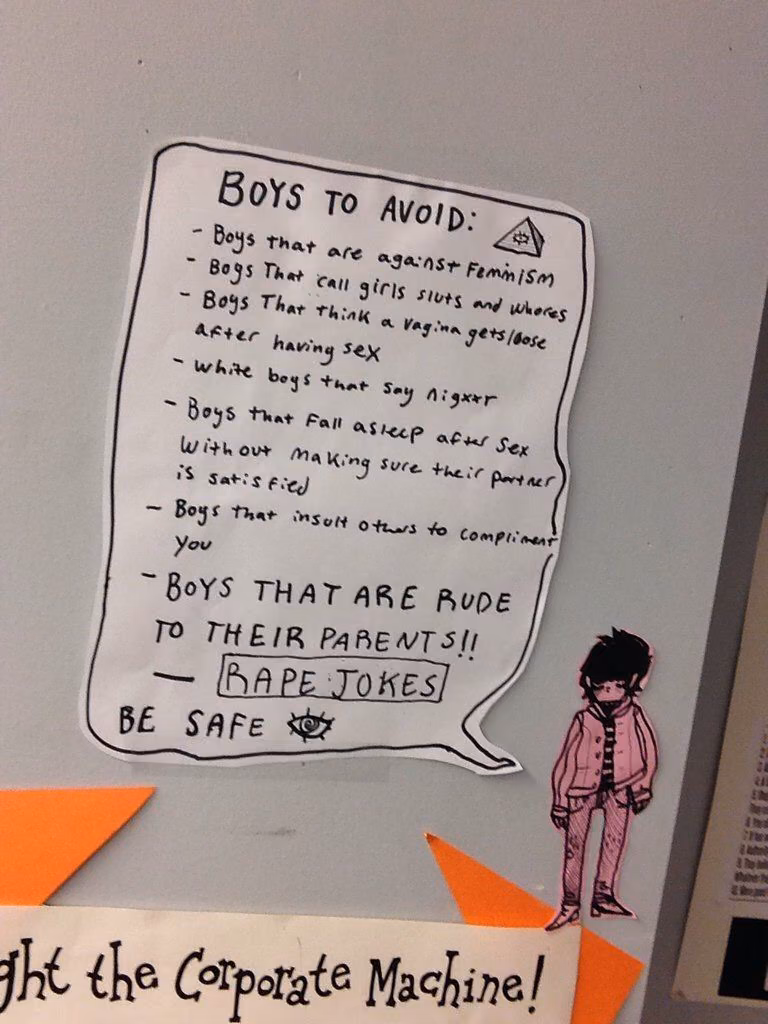 BOYS TO AVOID:
- Boys that are against Feminism
- Boys That call girls sluts and whores
- Boys That think a vagina gets loose
after having sex
- white boys that say nigxxr
- Boys that fall asleep after sex
without making sure their partner
is satisfied
- Boys that insult others to compliment
you
- BOYS THAT ARE RUDE
TO THEIR PARENTS!!
- RAPE JOKES
BE SAFE
ght the Corporate Machine!